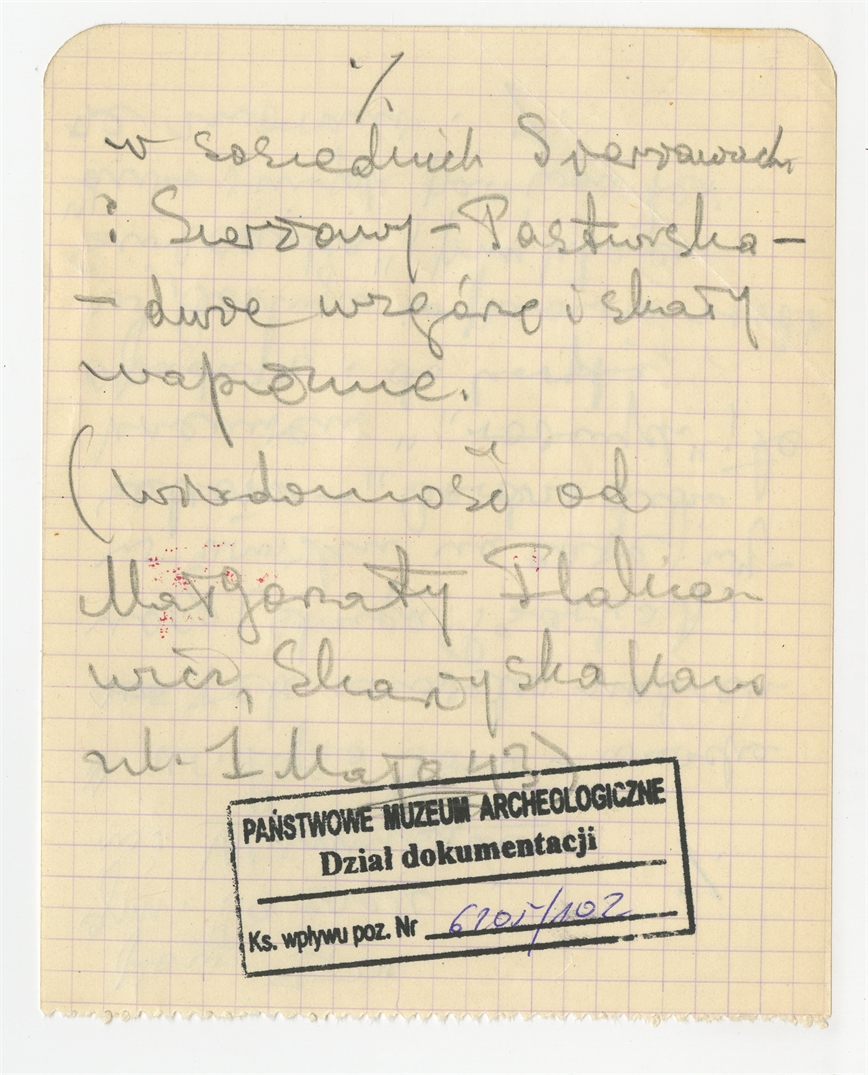 ·/.
w sosiednich Sierzawach
? Sierzawy - Pastwiska -
- duże wzgórze i skały
wapienne.
(wiadomość od
Małgorzaty
wicz, Skarżyska Kam
ul. 1 Maja 43)
PAŃSTWOWE MUZEUM ARCHEOLOGICZNE
Dział dokumentacji
Ks. wpływu poz. Nr 6205/102